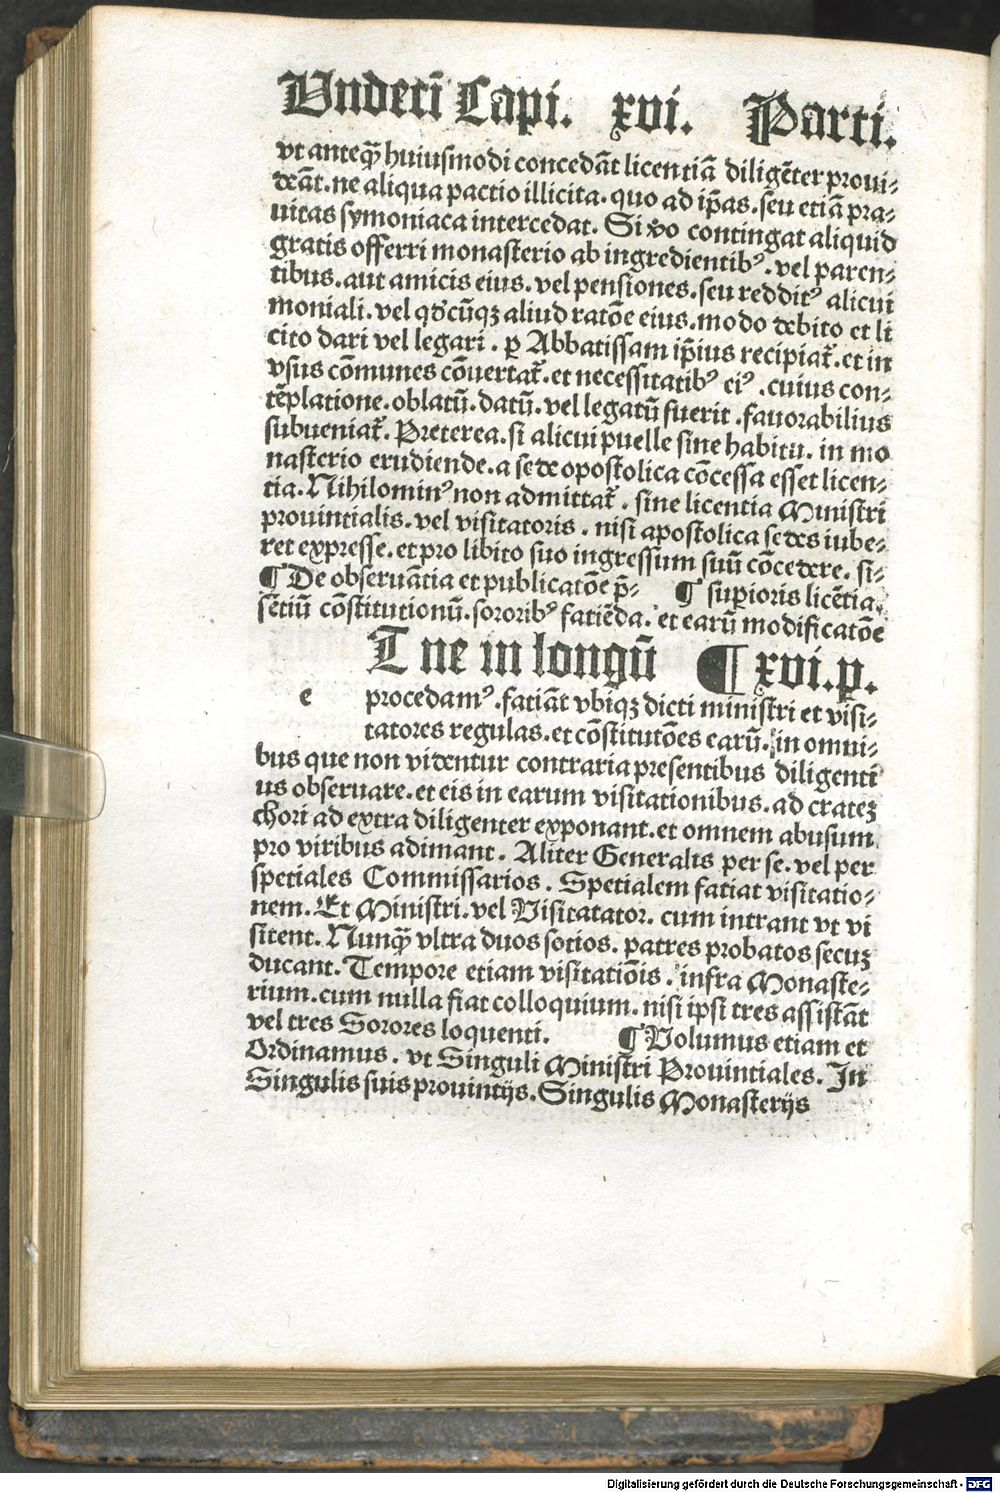 Undecī Capi. xvi. Parti.
vt anteq̄ȝ huiusmodi concedāt licentiā diligēter proui⸗
deāt. ne aliqua pactio illicita. quo ad ip̄as. seu etiā pra⸗
uitas symoniaca intercedat. Si v̓o contingat aliquid
gratis offerri monasterio ab ingredientibꝰ. vel paren⸗
tibus. aut amicis eius. vel pensiones. seu redditꝰ alicui
moniali. vel qd̓cūqꝫ aliud ratōe eius. modo debito et li
cito dari vel legari. ꝑ Abbatissam ip̄ius recipiat᷒. et in
vsus cōmunes cōuertat᷒. et necessitatibꝰ eiꝰ. cuius con⸗
tēplatione. oblatū. datū. vel legatū fuerit. fauorabilius
subueniat᷒. Preterea. si alicui puelle sine habitu. in mo
nasterio erudiende. a sede opostolica cōcessa esset licen⸗
tia. Nihilominꝰ non admittat᷒. sine licentia Ministri
prouintialis. vel visitatoris. nisi apostolica sedes iube⸗
ret expresse. et pro libito suo ingressum suū cōcedere. si⸗
¶ De obseruātia et publicatōe p̄⸗ ¶ suꝑioris licētia.
sētiū cōstitutionū. sororibꝰ fatiēda. et earū modificatōe
T ne in longū ¶ xvi. ꝑ.
e procedamꝰ. fatiāt vbiqꝫ dicti ministri et visi⸗
tatores regulas. et cōstitutōes earū. in omni⸗
bus que non videntur contraria presentibus diligenti
us obseruare. et eis in earum visitationibus. ad crateꝫ
chori ad extra diligenter exponant. et omnem abusum
pro viribus adimant. Aliter Generalis per se. vel per
spetiales Commissarios. Spetialem fatiat visitatio⸗
nem. Et Ministri. vel Visitatator. cum intrant vt vi
sitent. Nunq̄ȝ vltra duos sotios. patres probatos secuꝫ
ducant. Tempore etiam visitatiōis. infra Monaste⸗
rium. cum nulla fiat colloquium. nisi ipsi tres assistāt
vel tres Sorores loquenti. ¶ Volumus etiam et
Ordinamus. vt Singuli Ministri Prouintiales. In
Singulis suis prouintijs. Singulis Monasterijs
Digitalisierung gefördert durch die Deutsche Forschungsgemeinschaft - DFG